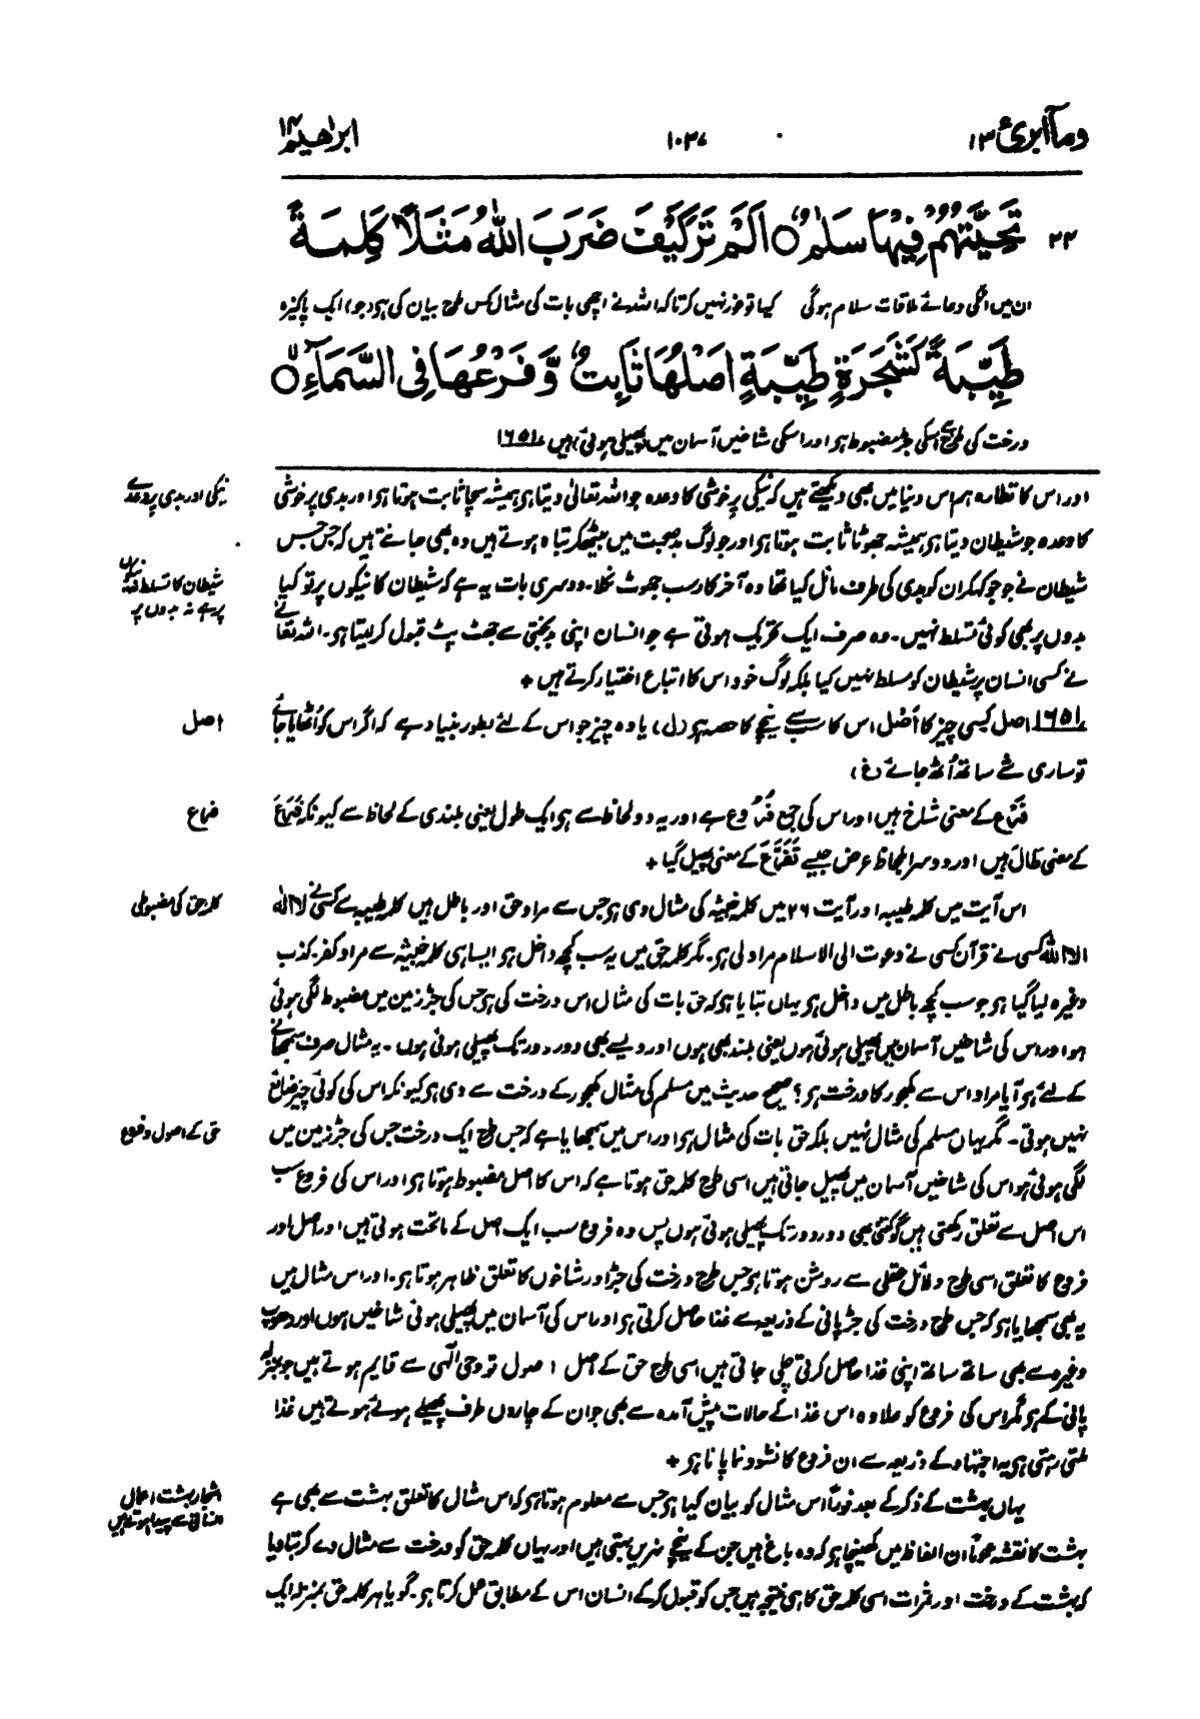 ومآ ابرئ ۱۳
۱۰۳۷
ابراھیم ۱۴
۲۳ تَحِيَّتُهُمْ فِيْهَا سَلٰمٌ ○ اَلَمْ تَرَ كَيْفَ ضَرَبَ اللّٰهُ مَثَلًا كَلِمَةً
ان میں انکی دعائے ملاقات سلام ہوگی کیا تو غور نہیں کرتا کہ اللہ نے اچھی بات کی مثال کس طرح بیان کی ہو (جو) ایک پاکیزہ
طَيِّبَةً كَشَجَرَةٍ طَيِّبَةٍ اَصْلُهَا ثَابِتٌ وَّ فَرْعُهَا فِى السَّمَآءِ ○
درخت کی طرح ہے اسکی جڑ مضبوط ہو اور اسکی شاخیں آسمان میں پھیلی ہوئی ہیں ۱۶۵۱
اور اس کا نظارہ ہم اس دنیا میں بھی دیکھتے ہیں کہ نیکی پر خوشی کا وعدہ جو اللہ تعالیٰ دیتا ہو ہمیشہ سچا ثابت ہوتا ہو اور بدی پر خوشی
نیکی اور بدی پر وعدے
کا وعدہ جو شیطان دیتا ہو ہمیشہ جھوٹا ثابت ہوتا ہو اور جو لوگ بد صحبت میں بیٹھ کر تباہ ہوتے ہیں وہ بھی جانتے ہیں کہ جس جس
شیطان نے جو جو کہکر ان کو بدی کی طرف مائل کیا تھا وہ آخر کار سب جھوٹ نکلا۔ دوسری بات یہ ہے کہ شیطان کا نیکوں پر تو کیا
شیطان کا تسلط نہ نیکوں
بدوں پر بھی کوئی تسلط نہیں۔ وہ صرف ایک تحریک ہوتی ہے جو انسان اپنی بدبختی سے جھٹ پٹ قبول کر لیتا ہو۔ اللہ تعالےٰ
پر ہے نہ بدوں پر
نے کسی انسان پر شیطان کو مسلط نہیں کیا بلکہ لوگ خود اس کا اتباع اختیار کرتے ہیں +
۱۶۵۱ اصل کسی چیز کا اَصْل اس کا سب سے نیچے کا حصہ ہو (ل) یا وہ چیز جو اس کے لئے بطور بنیاد ہے کہ اگر اس کو اُٹھایا جائے
اصل
تو ساری شے ساتھ اُٹھ جائے (غ)
فَرْع کے معنی شاخ ہیں اور اس کی جمع فُرُوع ہے اور یہ دو لحاظ سے ہو ایک طول یعنی بلندی کے لحاظ سے کیونکہ فَرَعَ
فرع
کے معنی طَالَ ہیں اور دوسرا بلحاظ عرض جیسے تَفَرَّعَ کے معنی پھیل گیا +
اس آیت میں کلمہ طیبہ اور آیت ۲۶ میں کلمہ خبیثہ کی مثال دی ہو جس سے مراد حق اور باطل ہیں کلمہ طیبہ سے کسی نے لا الہ
کلمہ حق کی مضبوطی
الا اللہ کسی نے قرآن کسی نے دعوت الی الاسلام مراد لی ہو۔ مگر کلمہ حق میں یہ سب کچھ داخل ہو ایسا ہی کلمہ خبیثہ سے مراد کفر، کذب
وغیرہ لیا گیا ہو جو سب کچھ باطل میں داخل ہو یہاں بتایا ہو کہ حق بات کی مثال اس درخت کی ہو جس کی جڑ زمین میں مضبوط لگی ہوئی
ہو اور اس کی شاخیں آسمان میں پھیلی ہوئی ہوں یعنی بلند بھی ہوں اور ویسے بھی دور دور تک پھیلی ہوئی ہوں۔ یہ مثال صرف سمجھانے
کے لئے ہو آیا مراد اس سے کھجور کا درخت ہو؟ صحیح حدیث میں مسلم کی مثال کھجور کے درخت سے دی ہو کیونکہ اس کی کوئی چیز ضائع
نہیں ہوتی۔ مگر یہاں مسلم کی مثال نہیں بلکہ حق بات کی مثال ہو اور اس میں سمجھایا ہے کہ جس طرح ایک درخت جس کی جڑ زمین میں
حق کے اصول و فروع
لگی ہوئی ہو اس کی شاخیں آسمان میں پھیل جاتی ہیں اسی طرح کلمہ حق ہوتا ہے کہ اس کا اصل مضبوط ہوتا ہو اور اس کی فروع سب
اس اصل سے تعلق رکھتی ہیں گو کتنی بھی دور دور تک پھیلی ہوئی ہوں پس وہ فروع سب ایک اصل کے ماتحت ہوتی ہیں اور اصل اور
فروع کا تعلق اسی طرح دلائل عقلی سے روشن ہوتا ہو جس طرح درخت کی جڑ اور شاخوں کا تعلق ظاہر ہوتا ہو۔ اور اس مثال میں
یہ بھی سمجھایا ہو کہ جس طرح درخت کی جڑ پانی کے ذریعہ سے غذا حاصل کرتی ہو اور اس کی آسمان میں پھیلی ہوئی شاخیں ہوا اور دھوپ
وغیرہ سے بھی ساتھ ساتھ اپنی غذا حاصل کرتی چلی جاتی ہیں اسی طرح حق کے اصل اصول تو وحی الٰہی سے قایم ہوتے ہیں جو بمنزلہ
پانی کے ہو مگر اس کی فروع کو علاوہ اس غذا کے حالات پیش آمدہ سے بھی جو ان کے چاروں طرف پھیلے ہوئے ہوتے ہیں غذا
ملتی رہتی ہو یہ اجتہاد کے ذریعہ سے ان فروع کا نشوونما پانا ہو +
یہاں بہشت کے ذکر کے بعد فوراً اس مثال کو بیان کیا ہو جس سے معلوم ہوتا ہو کہ اس مثال کا تعلق بہشت سے بھی ہے
اشجار بہشت اعمال
بہشت کا نقشہ عموماً ان الفاظ میں کھینچا ہو کہ وہ باغ ہیں جن کے نیچے نہریں بہتی ہیں اور یہاں کلمہ حق کو درخت سے مثال دے کر بتا دیا
انسانی سے پیدا ہوتے ہیں
کہ بہشت کے درخت اور ثمرات اسی کلمہ حق کا ہی نتیجہ ہیں جس کو قبول کر کے انسان اس کے مطابق عمل کرتا ہو۔ گویا ہر کلمہ حق بمنزلہ ایک